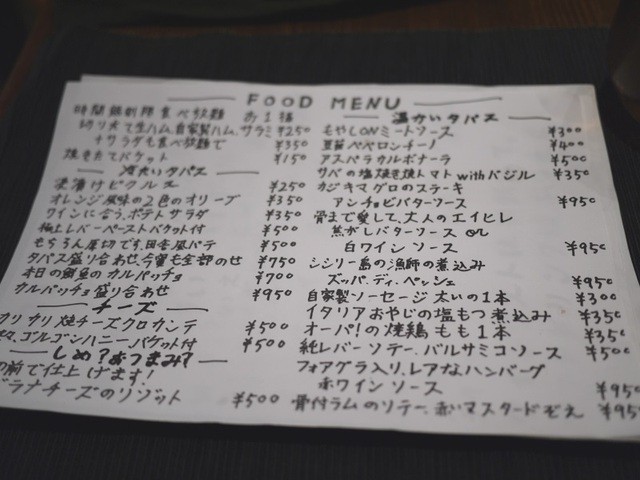 FOOD MENU
時間無制限食べ放題 お1人様
切り立て生ハム、自家製ハム、サラミ ¥250
+サラダも食べ放題で ¥350
焼きたてバケット ¥150
冷たいタパス
浅漬けピクルス ¥250
オレンジ風味の2色のオリーブ ¥350
ワインに合う、ポテトサラダ ¥350
極上レバーペーストバケット付 ¥500
もちろん厚切です、田舎風パテ ¥500
タパス盛り合わせ、今宵も全部のせ ¥750
本日の鮮魚のカルパッチョ ¥700
カルパッチョ盛り合わせ ¥950
チーズ
カリカリ焼チーズクロカンテ ¥500
ゴルゴンハニーバケット付 ¥500
しめ?おつまみ?
の前で仕上げます!
グラナチーズのリゾット ¥500
温かいタパス
もやしONミートソース ¥300
豆苗ペペロンチーノ ¥400
アスパラカルボナーラ ¥500
サバの塩焼き焼トマトwithバジル ¥350
カジキマグロのステーキ
アンチョビバターソース ¥950
骨まで愛して、大人のエイヒレ
焦がしバターソース or
白ワインソース ¥950
シシリー島の漁師の煮込み
ズッパ.ディ.ペッシェ ¥950
自家製ソーセージ太いの1本 ¥300
イタリアおやじの塩もつ煮込み ¥350
オーパ!の焼鶏もも1本 ¥350
純レバーソテー、バルサミコソース ¥500
フォアグラ入り、レアなハンバーグ
赤ワインソース ¥950
骨付ラムのソテー、赤いマスタードぞえ ¥950